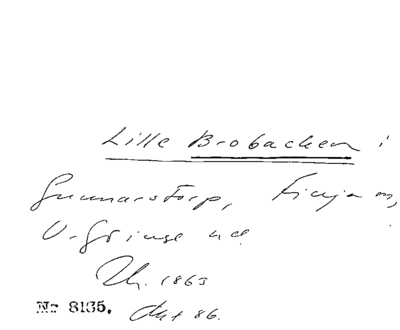 Lille Brobacken i
Gunnarstorp, Finja sn,
V. Göinge hd.
Th. 1863
Nr 8135. Akt 86.